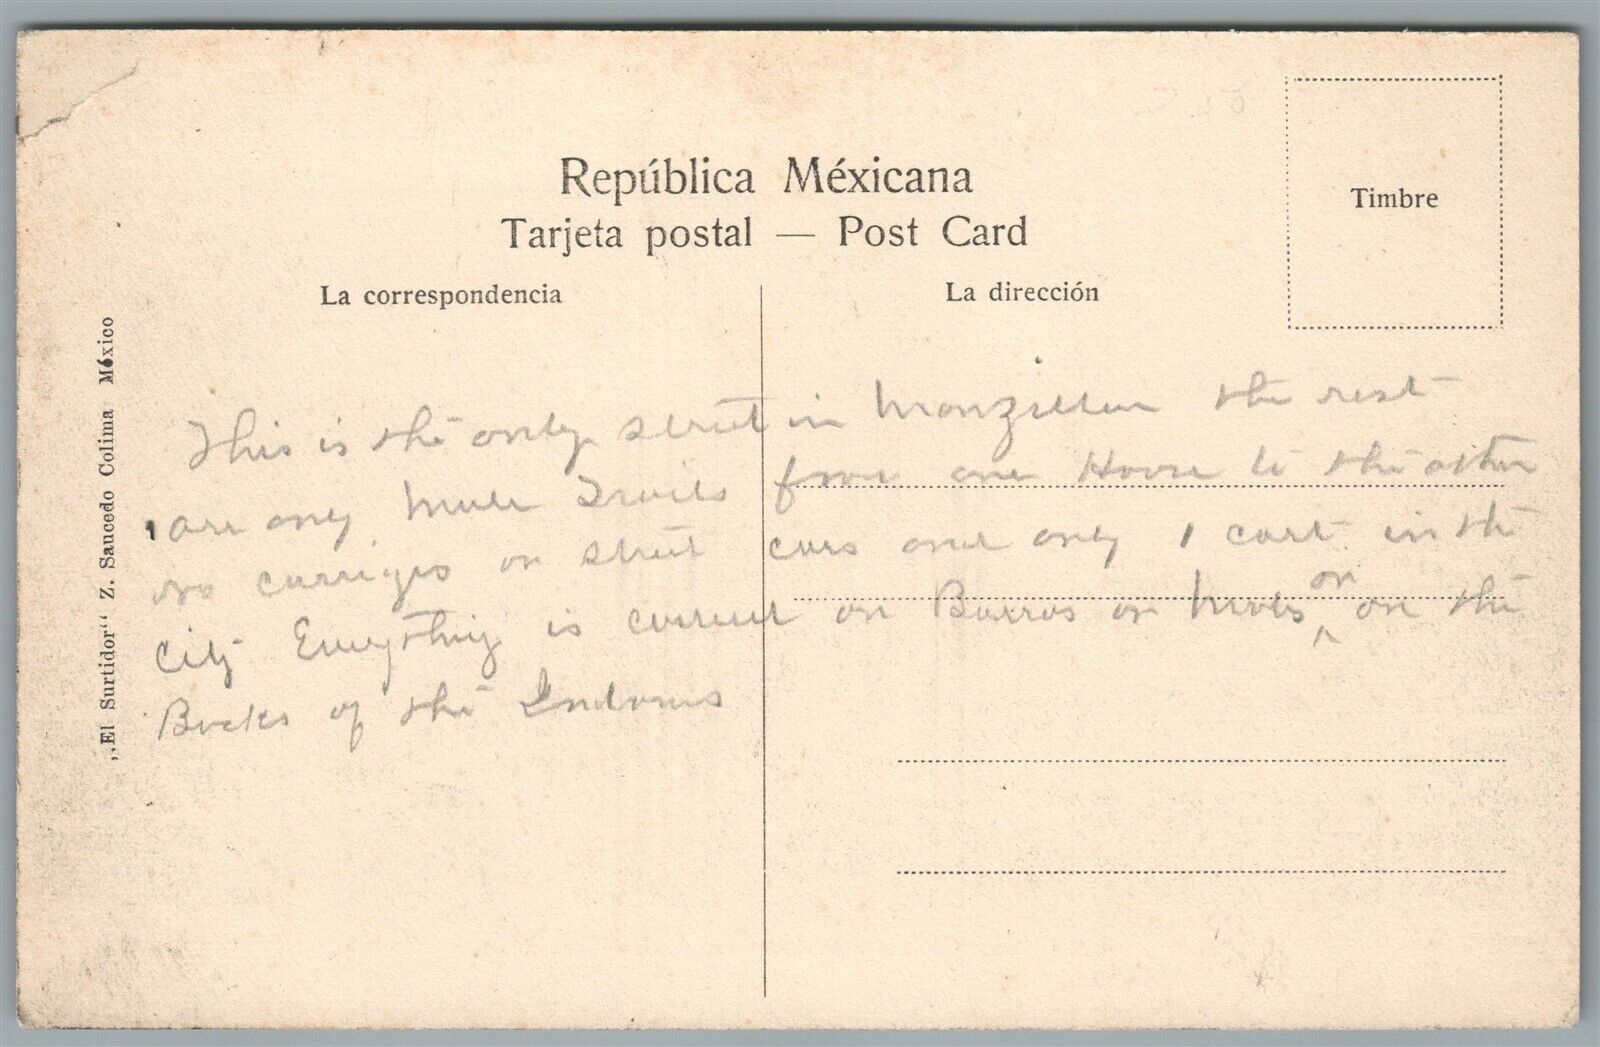 República Méxicana
Tarjeta postal — Post Card
La correspondencia
La dirección
Timbre
„El Surtidor“ Z. Saucedo Colima México
This is the only street in Manzillan the rest
are ony Mule Trails from one House to the other
no carriges or street cars and only 1 cart in the
City Everything is carried on Burros or Mules or on the
Backs of the Indians